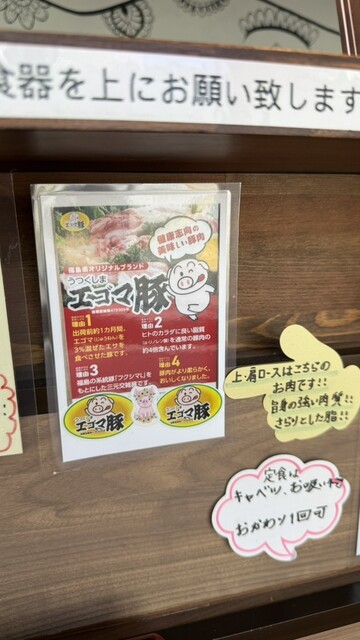 食器を上にお願い致します
エゴマ豚
健康志向の
美味しい豚肉
福島県オリジナルブランド
うつくしま
エゴマ豚
理由1
出荷前約1カ月間、
エゴマ(じゅうねん)を
3%混ぜたエサを
食べさせた豚です。
理由2
ヒトのカラダに良い脂質
(α-リノレン酸)を通常の豚肉の
約4倍含んでいます。
理由3
福島の系統豚「フクシマL」を
もとにした三元交雑豚です。
理由4
豚肉がより柔らかく、
おいしくなりました。
エゴマ豚
エゴマ豚
上・肩ロースはこちらの
お肉です!!
自身の強い肉質!!
さらりとした脂!!
定食は
キャベツ、お吸い物
おかわり1回可